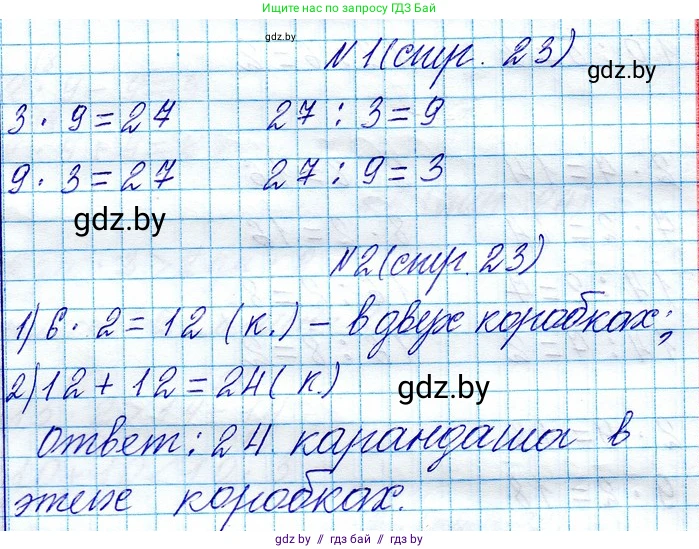 Ищите нас по запросу ГДЗ Бай
gdz.by
№1(стр. 23)
gdz.by
3 · 9 = 27 27 : 3 = 9
9 · 3 = 27 27 : 9 = 3
gdz.by
№2(стр. 23)
1) 6 · 2 = 12 (к.) – в двух коробках;
2) 12 + 12 = 24 (к.)
gdz.by
Ответ: 24 карандаша в
этих коробках.
gdz.by // гдз бай // gdz.by